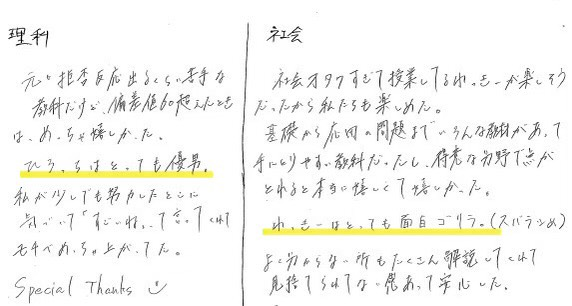 理科
元々拒否反応出るくらい苦手な
教科だけど、偏差値60超えたとき
は、めっちゃ嬉しかった。
ひろっちはとっても優男。
私が少しでも努力したとこに
気づいて「すごいね」って言ってくれて
モチベめっちゃ上がってた。
Special Thanks
社会
社会オタクすぎて授業してるわっきーが楽しそう
だったから私たちも楽しめた。
基礎から応用の問題までいろんな教材があって
手にとりやすい教科だったし、得意な分野で点が
とれると本当に嬉しくて嬉しかった。
わっきーはとっても面白ゴリラ。(スバラシめ)
よく分からない所もたくさん解説してくれて
見捨てられてない感あって安心した。